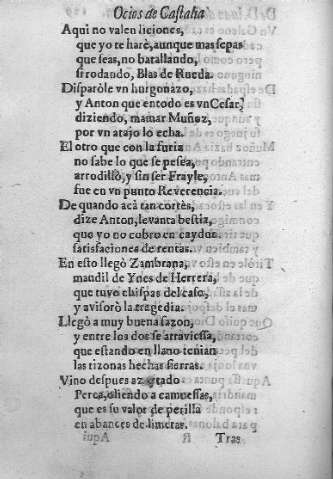 Ocios de Castalia
Aqui no valen liciones,
que yo te harè, aunque mas sepas
que seas, no batallando,
si rodando, Blas de Rueda.
Disparòle vn hurgonazo,
y Anton que en todo es vn Cesar,
diziendo, mamar Muñoz,
por vn atajo lo echa.
El otro que con la furia
no sabe lo que se pesca,
arrodillò, y sin ser Frayle,
fue en vn punto Reverencia.
De quando acà tan cortès,
dize Anton, levanta bestia,
que yo no cobro en caydos
satisfaciones de rentas.
En esto llegò Zambrana,
mandil de Ynes de Herrera,
que tuvo chispas del caso,
y avisorò la tragedia.
Llegò a muy buena sazon,
y entre los dos se atraviessa,
que estando en llano tenian
las tizonas hechas sierras.
Vino despues
Perea, oliendo a camuessas,
que es su valor de perilla
en abances de limeras.
B Tras